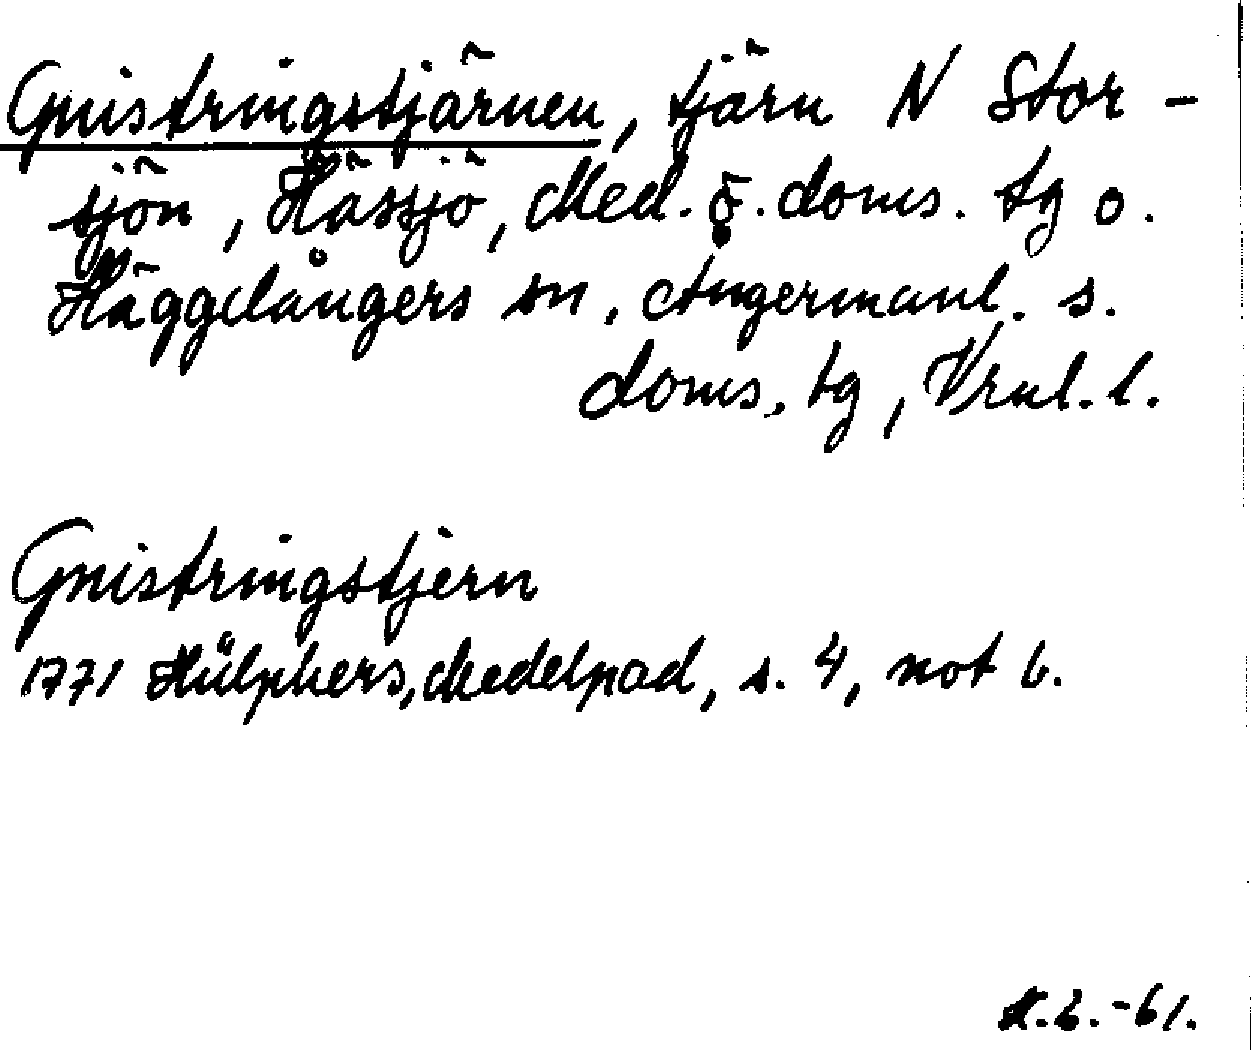 Gnistringstjärnen, tjärn N Stor-
sjön, Hässjö, Med. ö. doms. tg o.
Häggdångers sn, Ångermanl. s.
doms. tg, Vrnl. l.
Gnistringstjern
1771 Hülphers, Medelpad, s. 4, not b.
-61.